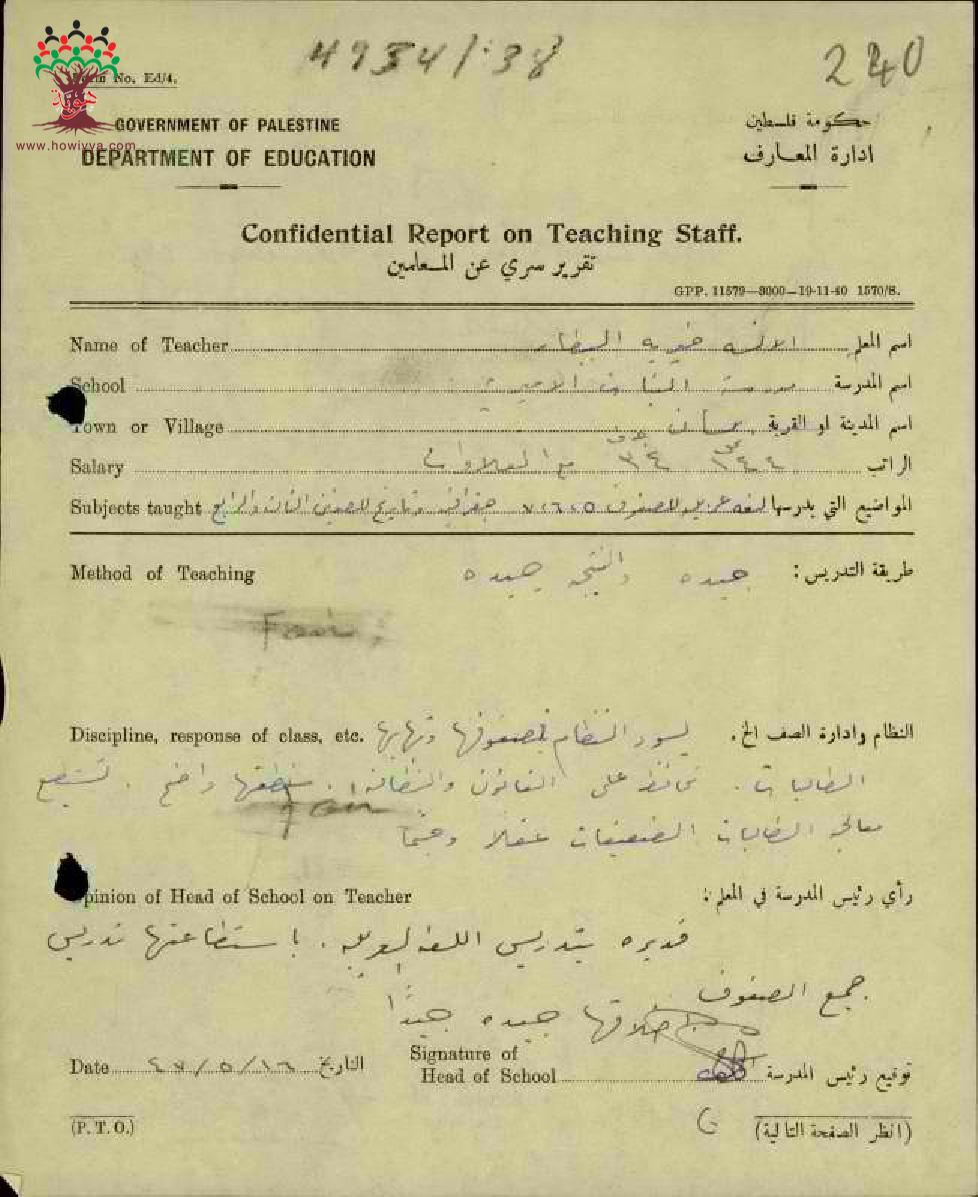 4934/38
240
Form No. Ed/4.
www.howiyya.com
GOVERNMENT OF PALESTINE
حكومة فلسطين
DEPARTMENT OF EDUCATION
ادارة المعارف
Confidential Report on Teaching Staff.
تقرير سري عن المعلمين
GPP. 11579—3000—19-11-40 1570/8.
Name of Teacher الانسه خيريه البيطار اسم المعلم
School مدرسة البنات الاميرية اسم المدرسة
Town or Village بيسان اسم المدينة او القرية
Salary مع العلاوات الراتب
Subjects taught لغه عربيه للصفوف ٥،٦،٧ جغرافية وتاريخ للصفين الثالث والرابع المواضيع التي يدرسها
Method of Teaching جيده والنتيجه جيده طريقة التدريس:
Fair
Discipline, response of class, etc. يسود النظام بصفوفها وتهابها النظام وادارة الصف الخ.
الطالبات. تحافظ على القانون والنظافه. منطقها واضح. تستطيع
Fair
معالجة الطالبات الضعيفات عقلا وجسما
Opinion of Head of School on Teacher رأي رئيس المدرسة في المعلم:
قديره بتدريس اللغه العربيه. باستطاعتها تدريس
جميع الصفوف
اخلاقها جيده جيدًا
Date ١٦/٥/٤٧ التاريخ
Signature of Head of School توقيع رئيس المدرسة
(P. T. O.)
(انظر الصفحة التالية)